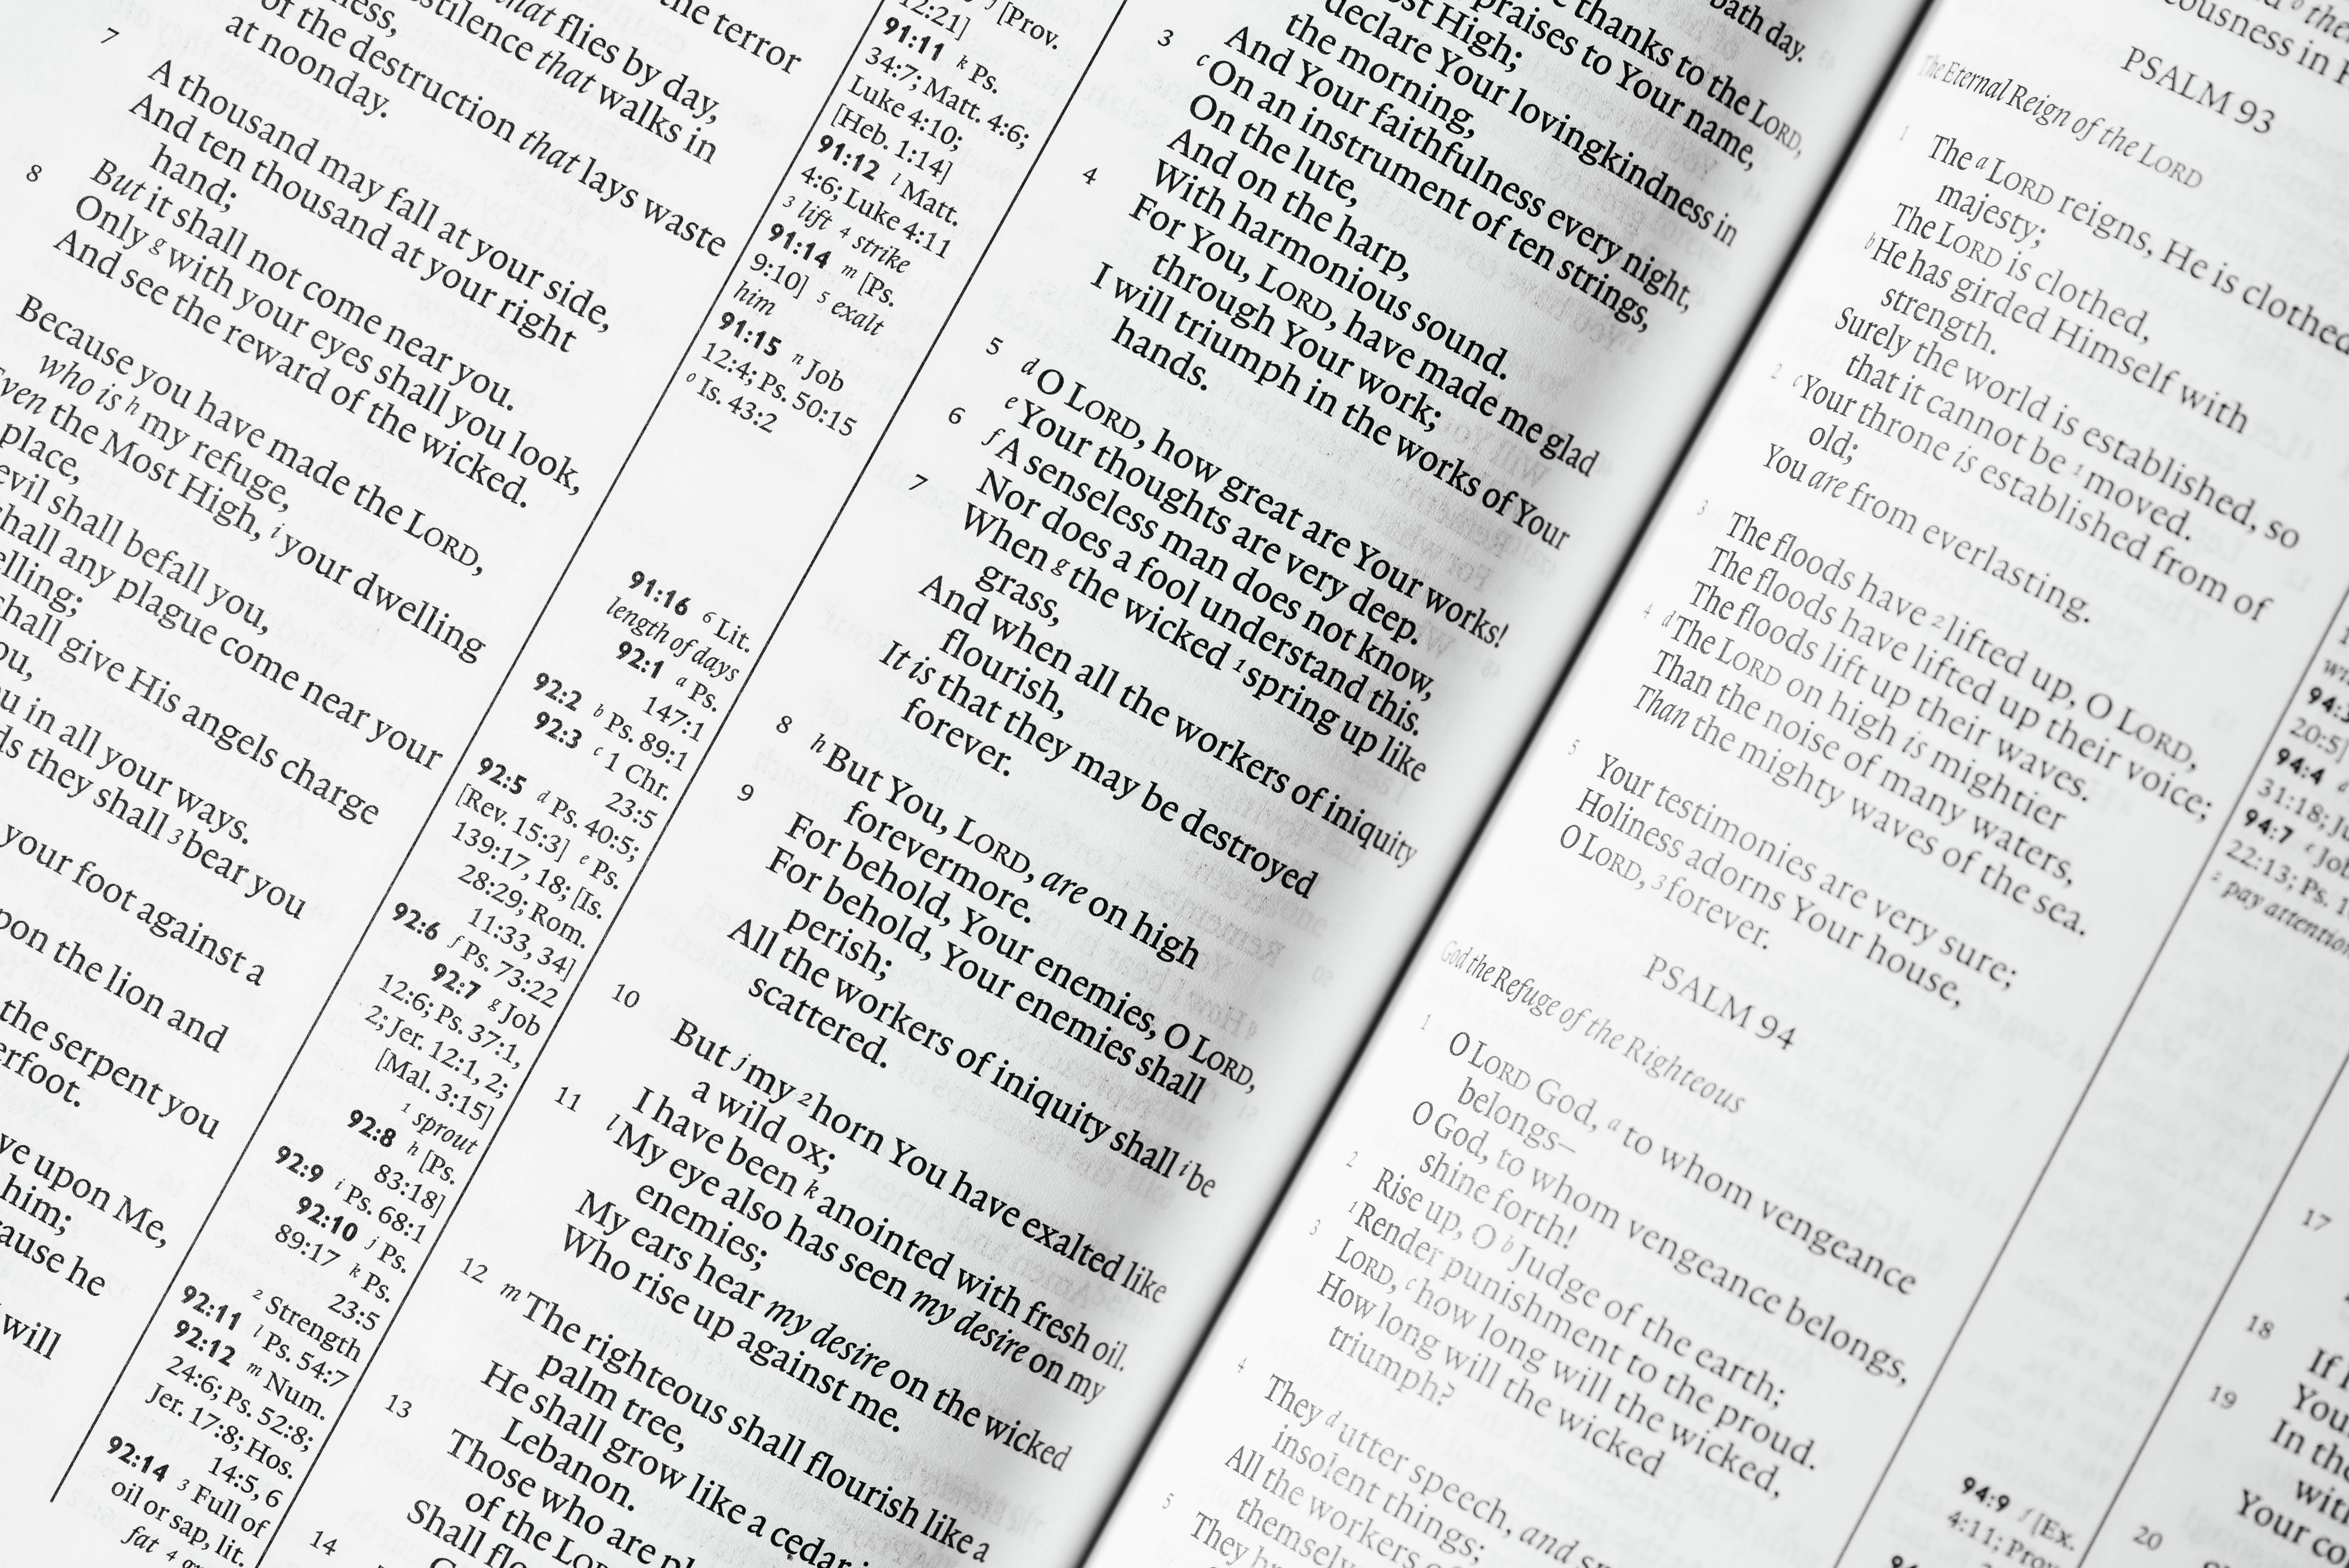 the terror
that flies by day,
that walks in
of the destruction that lays waste
at noonday.
7
A thousand may fall at your side,
And ten thousand at your right
hand;
8
But it shall not come near you.
Only g with your eyes shall you look,
And see the reward of the wicked.
Because you have made the LORD,
who is h my refuge,
the Most High, i your dwelling
place,
evil shall befall you,
shall any plague come near your
shall give His angels charge
in all your ways.
they shall 3 bear you
your foot against a
the lion and
the serpent you
upon Me,
him;
he
will
12:21] j [Prov.
91:11 k Ps.
34:7; Matt. 4:6;
Luke 4:10;
[Heb. 1:14]
91:12 l Matt.
4:6; Luke 4:11
3 lift 4 strike
91:14 m [Ps.
9:10] 5 exalt
him
91:15 n Job
12:4; Ps. 50:15
o Is. 43:2
91:16 6 Lit.
length of days
92:1 a Ps.
147:1
92:2 b Ps. 89:1
92:3 c 1 Chr.
23:5
92:5 d Ps. 40:5;
[Rev. 15:3] e Ps.
139:17, 18; [Is.
28:29; Rom.
11:33, 34]
92:6 f Ps. 73:22
92:7 g Job
12:6; Ps. 37:1,
2; Jer. 12:1, 2;
[Mal. 3:15]
1 sprout
92:8 h [Ps.
83:18]
92:9 i Ps. 68:1
92:10 j Ps.
89:17 k Ps.
23:5
2 Strength
92:11 l Ps. 54:7
92:12 m Num.
24:6; Ps. 52:8;
Jer. 17:8; Hos.
14:5, 6
92:14 3 Full of
oil or sap, lit.
fat 4
day.
thanks to the LORD,
praises to Your name,
High;
declare Your lovingkindness in
the morning,
And Your faithfulness every night,
3
c On an instrument of ten strings,
On the lute,
And on the harp,
With harmonious sound.
4
For You, LORD, have made me glad
through Your work;
I will triumph in the works of Your
hands.
5
d O LORD, how great are Your works!
e Your thoughts are very deep.
6
f A senseless man does not know,
Nor does a fool understand this.
7
When g the wicked 1 spring up like
grass,
And when all the workers of iniquity
flourish,
It is that they may be destroyed
forever.
8
h But You, LORD, are on high
forevermore.
9
For behold, Your enemies, O LORD,
For behold, Your enemies shall
perish;
All the workers of iniquity shall i be
scattered.
10
But j my 2 horn You have exalted like
a wild ox;
I have been k anointed with fresh oil.
11
l My eye also has seen my desire on my
enemies;
My ears hear my desire on the wicked
Who rise up against me.
12
m The righteous shall flourish like a
palm tree,
He shall grow like a cedar
Lebanon.
13
Those who are
of the LORD
Shall
14
PSALM 93
The Eternal Reign of the LORD
1
The a LORD reigns, He is clothed
majesty;
The LORD is clothed,
b He has girded Himself with
strength.
Surely the world is established, so
that it cannot be 1 moved.
2
c Your throne is established from of
old;
You are from everlasting.
3
The floods have 2 lifted up, O LORD,
The floods have lifted up their voice;
The floods lift up their waves.
4
d The LORD on high is mightier
Than the noise of many waters,
Than the mighty waves of the sea.
5
Your testimonies are very sure;
Holiness adorns Your house,
O LORD, 3 forever.
PSALM 94
God the Refuge of the Righteous
1
O LORD God, a to whom vengeance
belongs—
O God, to whom vengeance belongs,
shine forth!
2
Rise up, O b Judge of the earth;
1 Render punishment to the proud.
3
LORD, c how long will the wicked,
How long will the wicked
triumph?
4
They d utter speech, and
insolent things;
All the workers
5
They
20:5]
94:4
31:18;
94:7 e Job
22:13; Ps.
2 pay attention
94:9 f [Ex.
4:11; Prov.
17
18
If
19
In the
Your
20